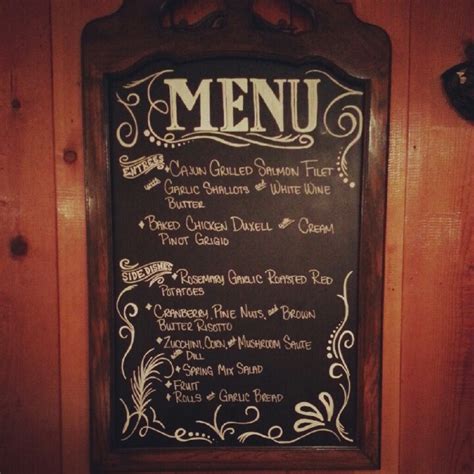 MENU
ENTREES
+ CAJUN GRILLED SALMON FILET
with GARLIC SHALLOTS and WHITE WINE
BUTTER
+ BAKED CHICKEN DUXELL with CREAM
PINOT GRIGIO
SIDE DISHES
+ ROSEMARY GARLIC ROASTED RED
POTATOES
+ CRANBERRY, PINE NUTS, and BROWN
BUTTER RISOTTO
+ ZUCCHINI, CORN, and MUSHROOM SAUTE
with DILL
+ SPRING MIX SALAD
+ FRUIT
+ ROLLS and GARLIC BREAD